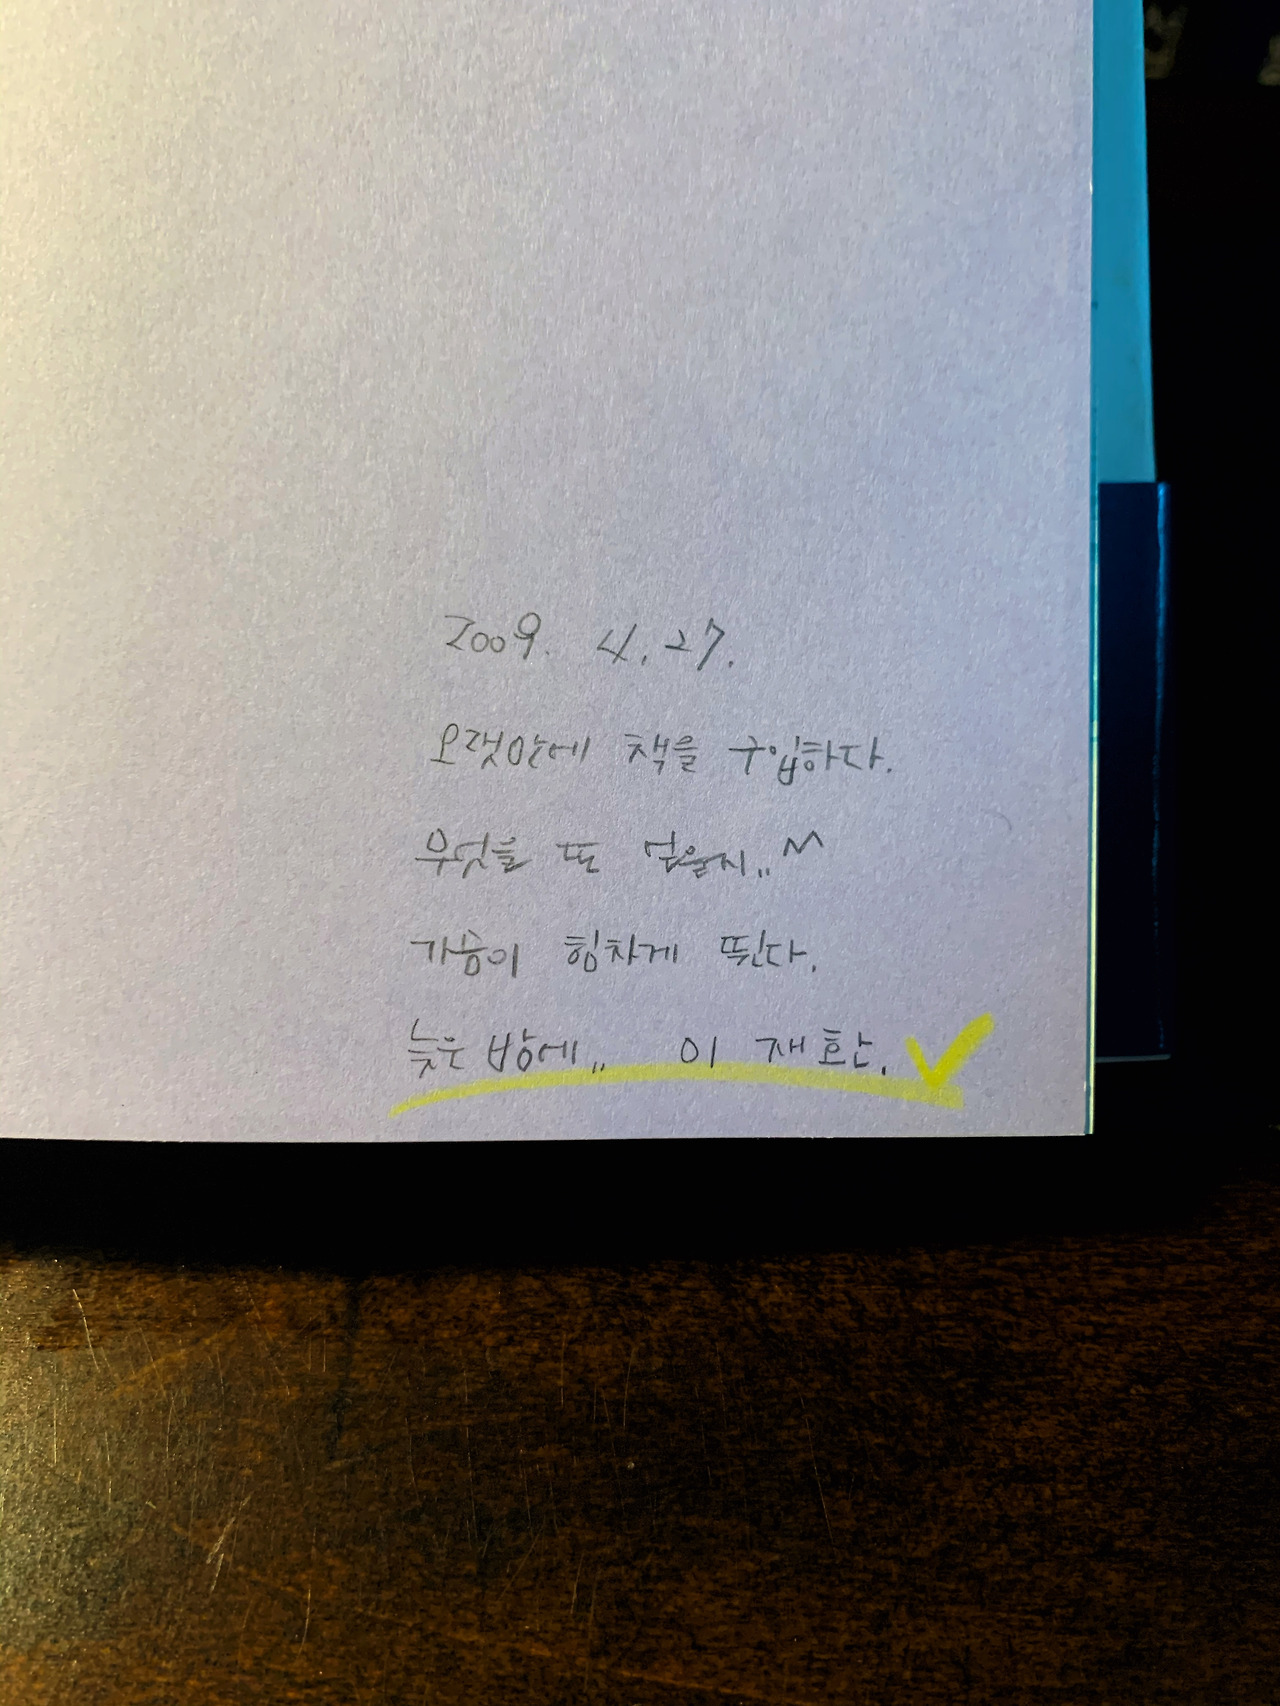 2009. 4. 27.
오랫만에 책을 구입하다.
무엇을 또 얻을지,, ^^
가슴이 힘차게 뛴다.
늦은 밤에,, 이 재환.